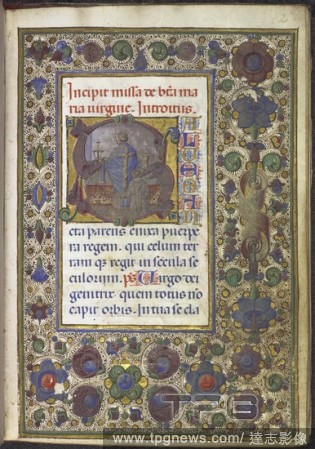 2
Incipit missa de bt̃i ma
ria uirgine. Introitus.
SALVE
SAN
cta parens enixa puerpe
ra regem. qui celum ter
ram qȝ regit in secula se
culorum. ps Uirgo dei
genitrix quem totus nō
capit orbis. In tua se cla
TPG
www.tpgnews.com/ 達志影像